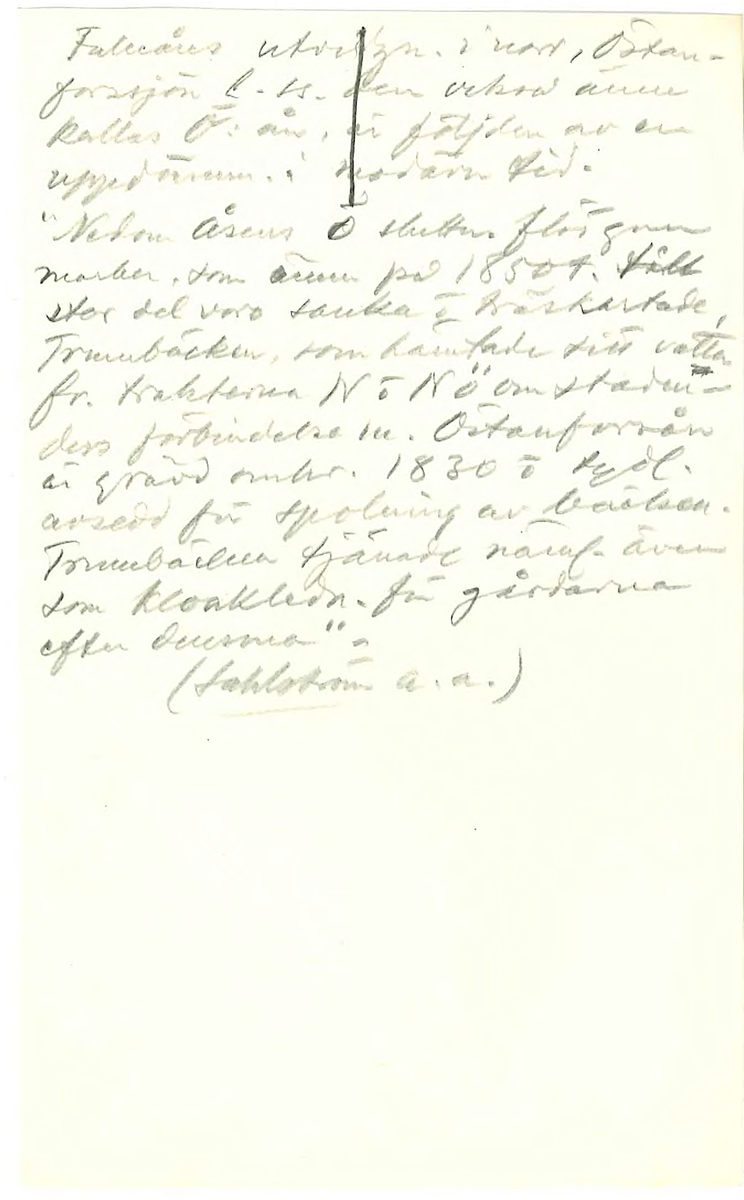 Faluåns utvidgn. i norr, Östan-
forssjön l. ss. den också ännu
kallas Ö: ån, är följden av en
uppdämn. i modärn tid.
"Nedom Åsens Ö sluttn. flöt genom
marker, som ännu på 1850 t. till
stor del voro sanka o träskartade,
Trumbäcken, som hämtade sitt vatten
fr. trakterna N o NÖ om staden -
dess förbindelse m. Östanforsån
är grävd omkr. 1830 o tydl.
avsedd för spolning av bäcken.
Trumbäcken tjänade näml. även
som kloakledn. för gårdarna
efter densma".
(Sahlström a. a.)